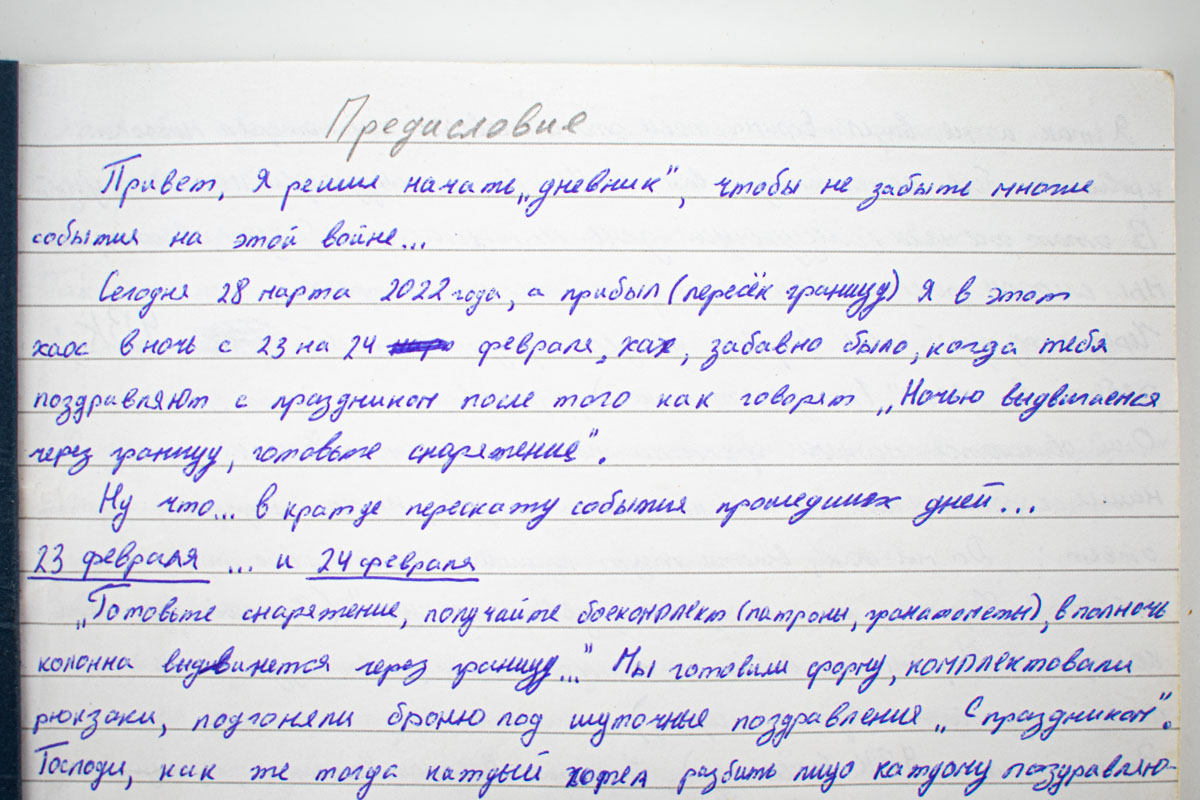 Предисловие
Привет, Я решил начать „дневник“, чтобы не забыть многие
события на этой войне...
Сегодня 28 марта 2022 года, а прибыл (пересёк границу) Я в этот
хаос в ночь с 23 на 24 февраля, хах, забавно было, когда тебя
поздравляют с праздником после того как говорят „Ночью выдвигаемся
через границу, готовьте снаряжение“.
Ну что... в кратце перескажу события прошедших дней...
23 февраля ... и 24 февраля
„Готовьте снаряжение, получайте боекомплект (патроны, гранатометы), в полночь
колонна выдвинется через границу...“ Мы готовили форму, комплектовали
рюкзаки, подгоняли броню под шуточные поздравления „С праздником“.
Господи, как же тогда каждый хотел разбить лицо каждому поздравляю-